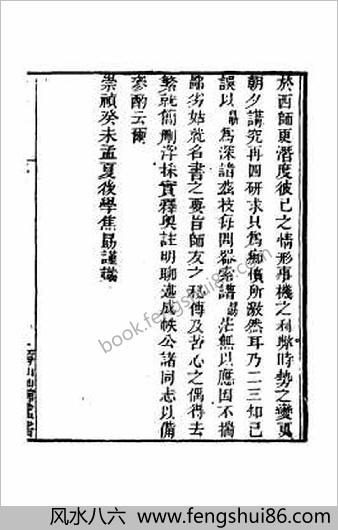 於西師更潛度彼已之情形事機之利弊時勢之變更
朝夕講究再四研求只為癡憤所激然耳乃二三知已
誤以勗為深諳茲技每問器索譜勗茫無以應因不揣
鄙劣姑就名書之要旨師友之秘傳及苦心之偶得去
繁就簡刪浮採實釋奧註明聊述成帙公諸同志以備
參酌云爾
崇禎癸未孟夏後學焦勗謹識
book.fengshui86.com
风水八六 - www.fengshui86.com